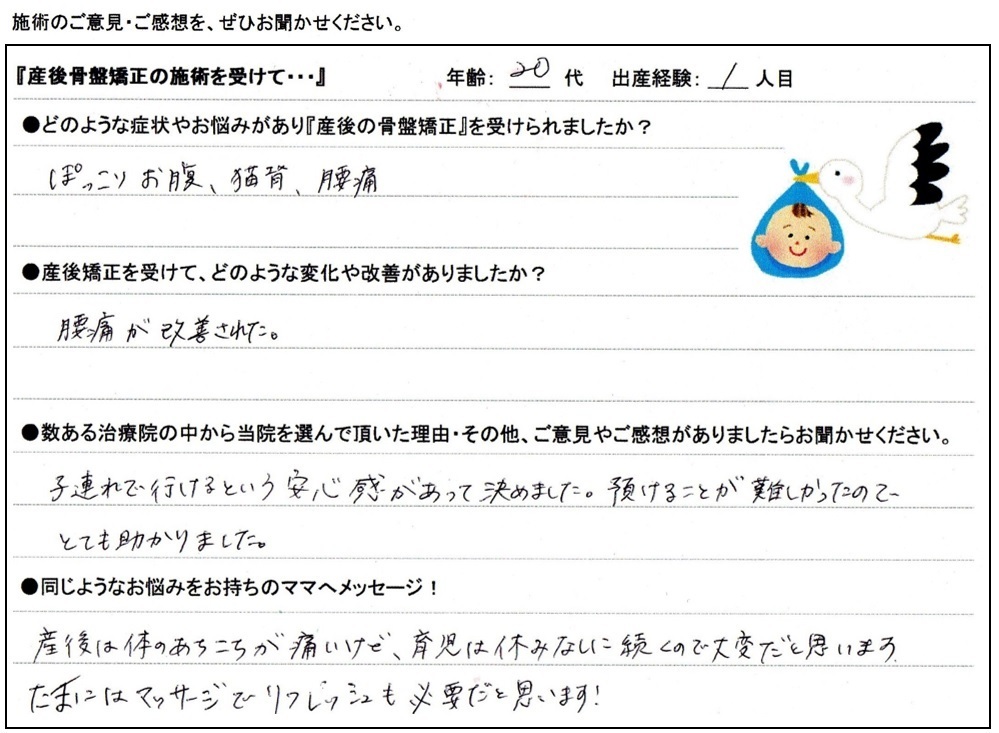 施術のご意見・ご感想を、ぜひお聞かせください。
『産後骨盤矯正の施術を受けて・・・』 年齢: 20 代 出産経験: 1 人目
●どのような症状やお悩みがあり『産後の骨盤矯正』を受けられましたか？
ぽっこりお腹、猫背、腰痛
●産後矯正を受けて、どのような変化や改善がありましたか？
腰痛が改善された。
●数ある治療院の中から当院を選んで頂いた理由・その他、ご意見やご感想がありましたらお聞かせください。
子連れで行けるという安心感があって決めました。預けることが難しかったので
とても助かりました。
●同じようなお悩みをお持ちのママへメッセージ！
産後は体のあちこちが痛いけど、育児は休みなしに続くので大変だと思います
たまにはマッサージでリフレッシュも必要だと思います！